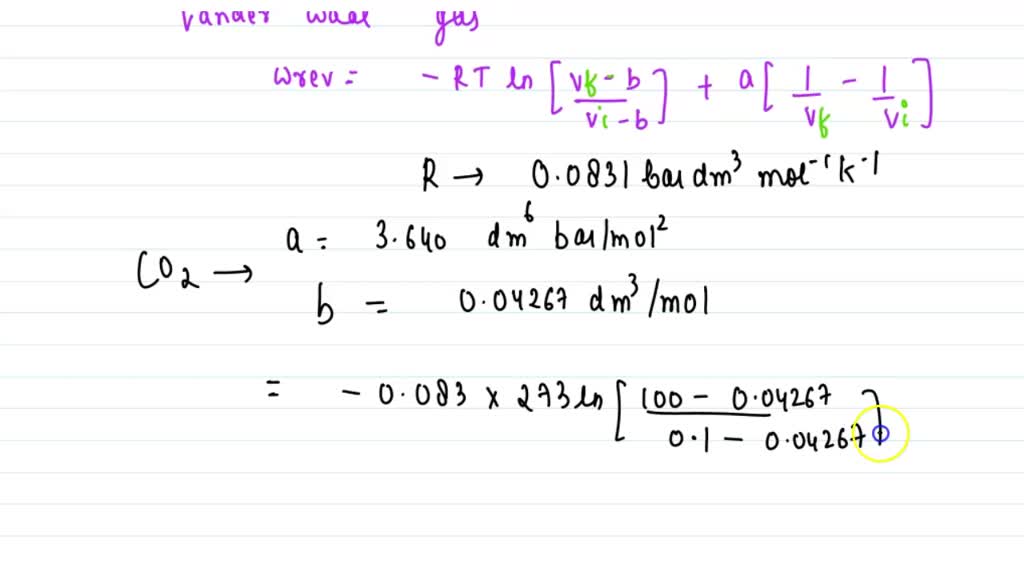 vander waal gas
wrev = - RT ln [ vf - b / vi - b ] + a [ 1 / vf - 1 / vi ]
R → 0.0831 bar dm³ mol⁻¹ k⁻¹
a = 3.640 dm⁶ bar/mol²
CO₂ →
b = 0.04267 dm³/mol
= - 0.083 × 273 ln [ 100 - 0.04267 / 0.1 - 0.04267 ]